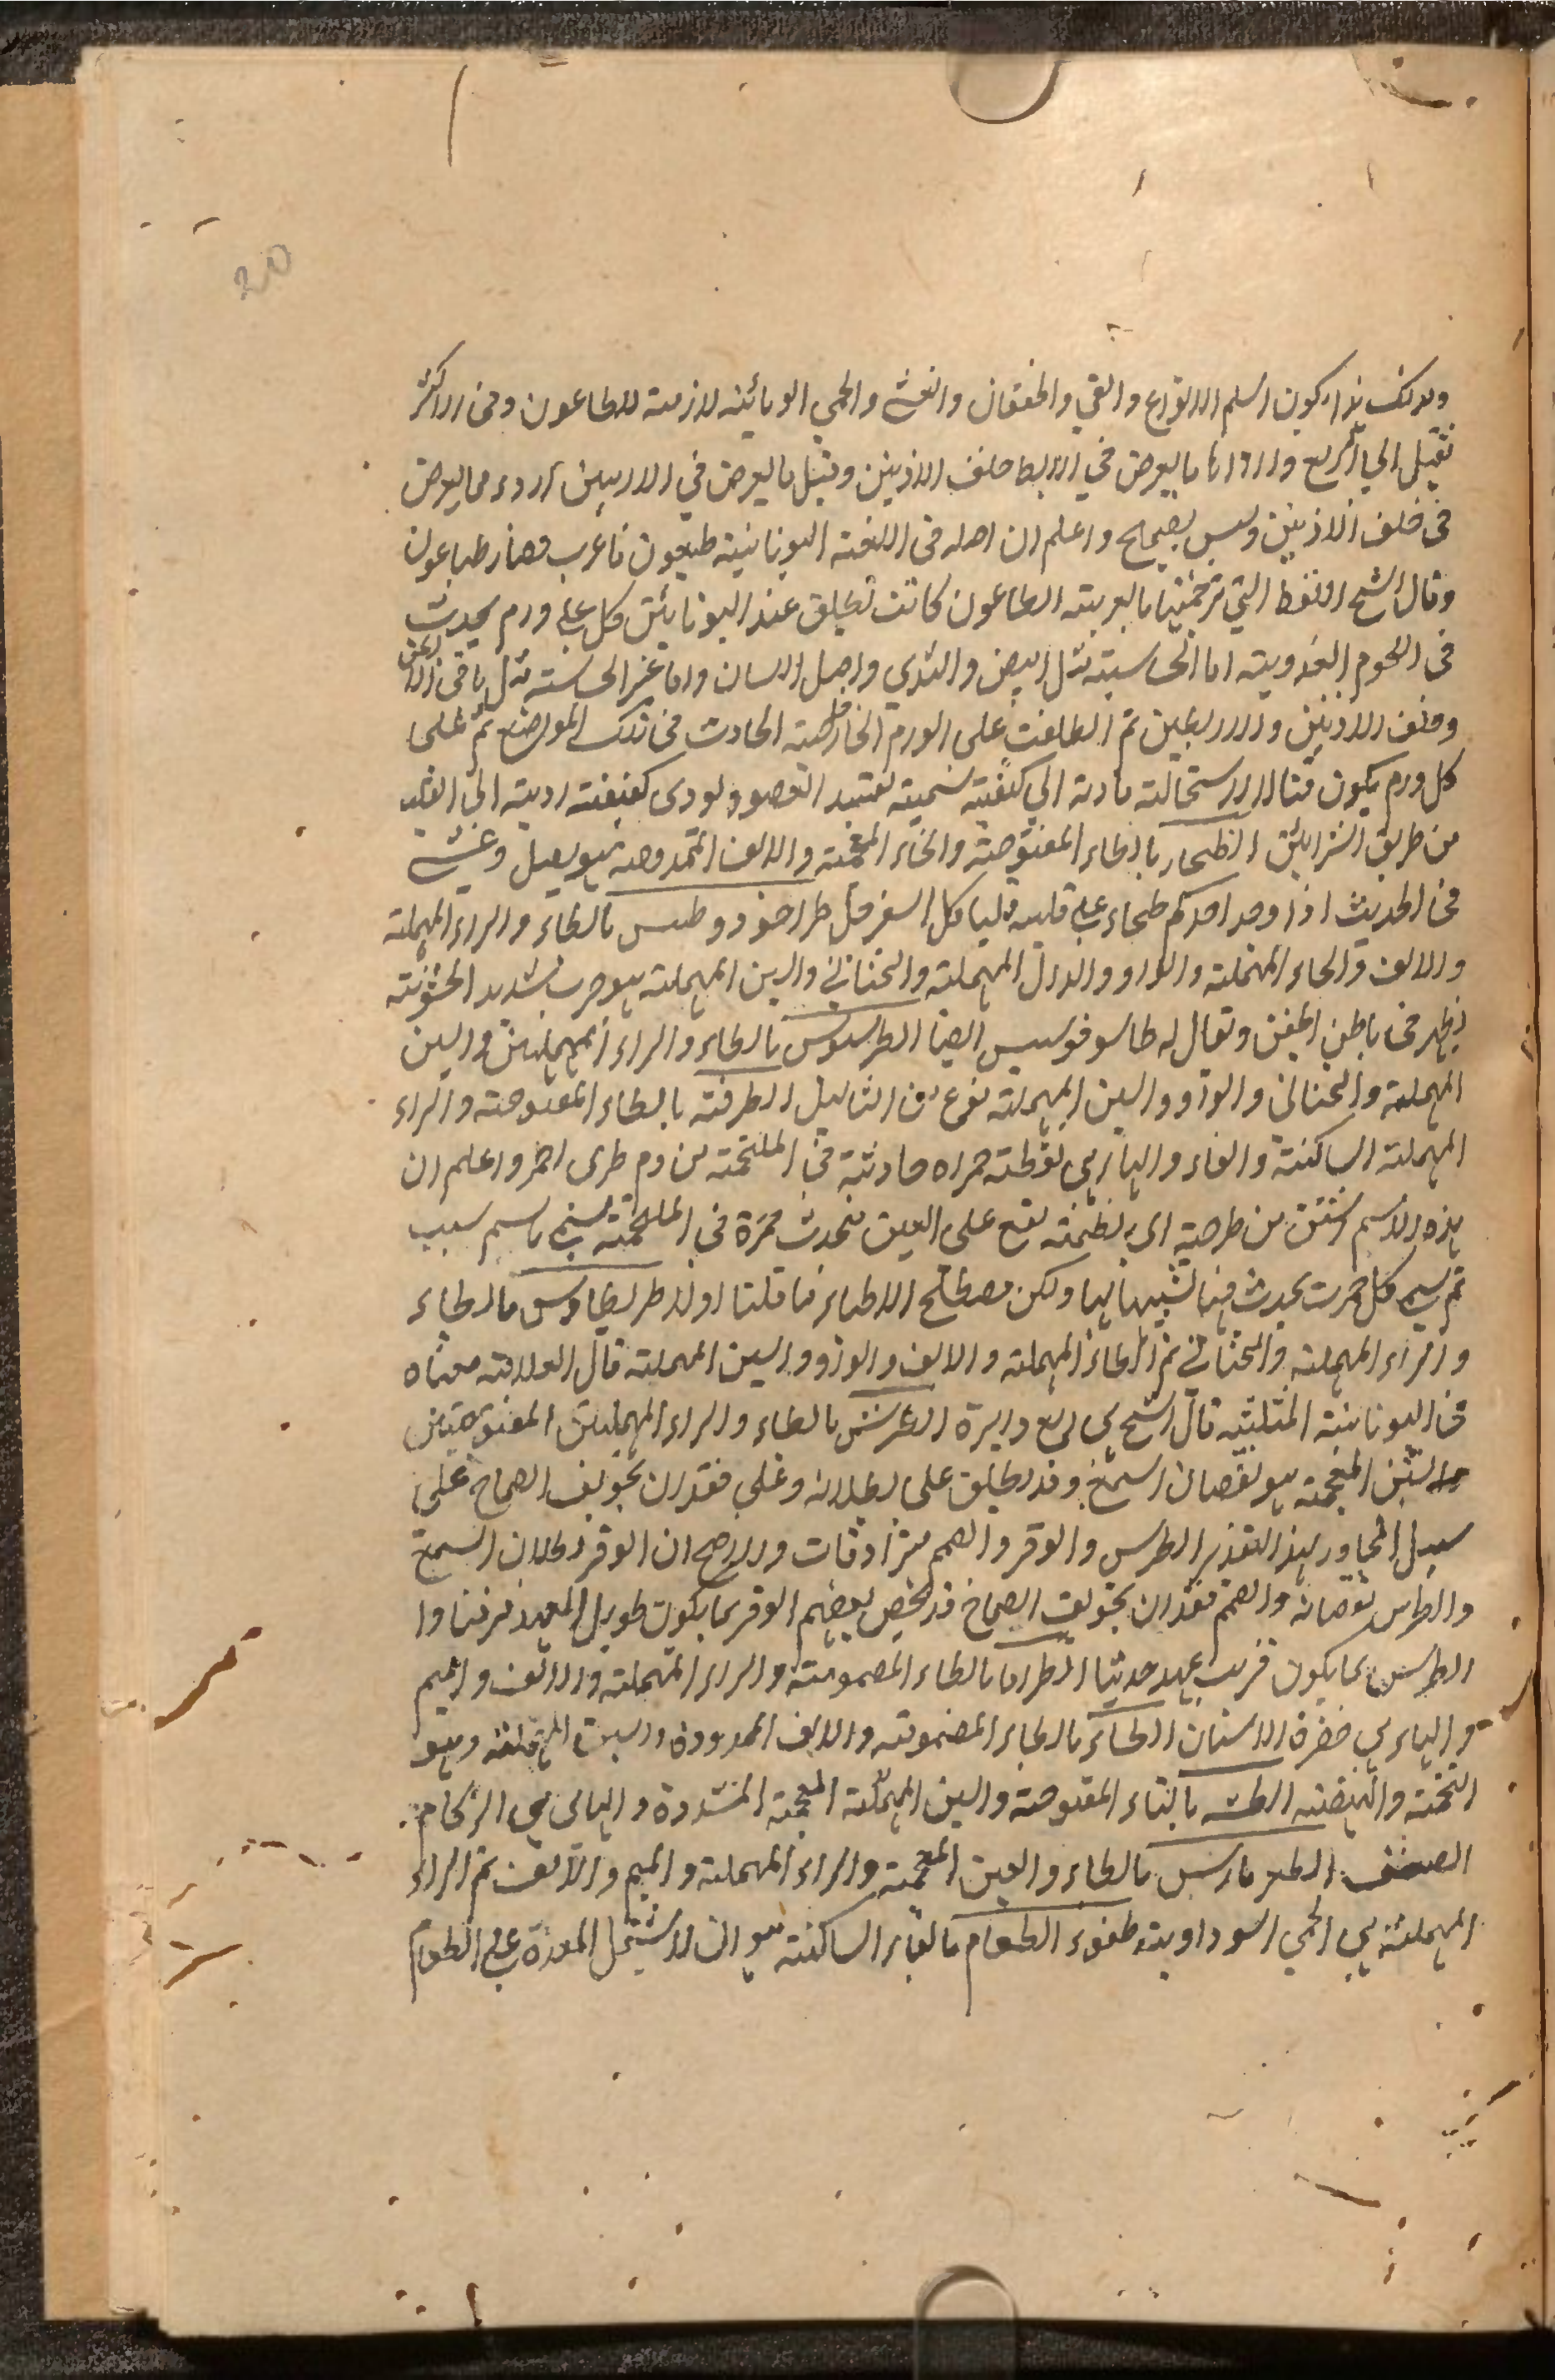 20
ولذلك هذا يكون اسلم الانواع والقي والخفقان والغشي والحمي الوبائية لازمة للطاعون وفي الاكثر
يقبل الي الربع ما يعرض في الابط خلف الاذنين وقيل ما يعرض في الاربيتين اردء مما يعرض
في خلف الاذنين وليس بصحيح واعلم ان اصله في اللغة اليونانية طيعون فاعرب فصار طاعون
وقال الشيخ اللفظ التي ترجمتها بالعربية الطاعون كانت تطلق عند اليونانيين كل علي ورم يحدث
في اللحوم الغددية اما الحاسية مثل البيض والثدي واصل اللسان واما غير الحاسة مثل ما في الابط
وخلف الاذنين والاربيتين ثم اطلقت علي الورم الخارجية الحادث في تلك المواضع ثم علي
كل ورم يكون قتالا لاستحالة مادته الي كيفية سمية تفسد العضو ويودي كيفيته ردية الي القلب
من طريق الشرايين الطخاء بالطاء المفتوحة والخاء المعجمة والالف الممدودة هو ثقل وغشي
في الحديث اذا وجد احدكم طخاء علي قلبه فلياكل السفرجل طراخودوطيس بالطاء والراء المهملة
والالف والخاء المهملة والواو والدال المهملة والتحتاني والسين المهملة هو جرب شديد الخشونة
يظهر في باطن الجفن ويقال له طاسوفوسيس ايضا الطرسيوس بالطاء والراء المهملتين والسين
المهملة والتحتاني والواو والسين المهملة نوع من الثاليل الطرفة بالطاء المفتوحة والراء
المهملة الساكنة والفاء والهاء هي نقطة حمراء حادثة في الملتحمة من دم طري احمر واعلم ان
هذه الاسم مشتق من طرفة اي لطمة تقع علي العين فتحدث حمرة في الملتحمة فسمي باسم سبب
ثم سمي كل حمرت يحدث فيها لشبهها بها ولكن مصطلح الاطباء ما قلنا اولا طريطاوس بالطاء
والراء المهملة والتحتاني ثم الطاء المهملة والالف والواو والسين المهملة قال العلامة معناه
في اليونانية المثلثة قال الشيخ هي ربع دايرة الطرش بالطاء والراء المهملتين المفتوحتين
والشين المعجمة هو نقصان السمع وقد يطلق علي بطلانه وعلي فقدان تجويف الصماخ علي
سبيل المجاور بهذا التقدير الطرش والوقر والصمم مترادفات والاصح ان الوقر بطلان السمع
والطرش نقصانه والصمم فقدان تجويف الصماخ قد يخص بعضهم الوقر بما يكون طويل العهد مزمنا وا
الطرش بما يكون قريب عهد حديثا الطراما بالطاء المضمومة والراء المهملة والالف والميم
والهاء هي خضرة الاسنان الطساء بالطاء المضمومة والالف الممدودة والسين المهملة وهو
التخمة والهيضة الطشه بالتاء المفتوحة والسين المهملة المعجمة المشددة والهاء هي الزكام
الصنف الطغرمارس بالطاء والغين المعجمة والراء المهملة والميم والالف ثم الراء
المهملة هي الحمي السوداوية طفوء الطعام بالفاء الساكنة هو ان لا يشتمل المعدة علي الطعام